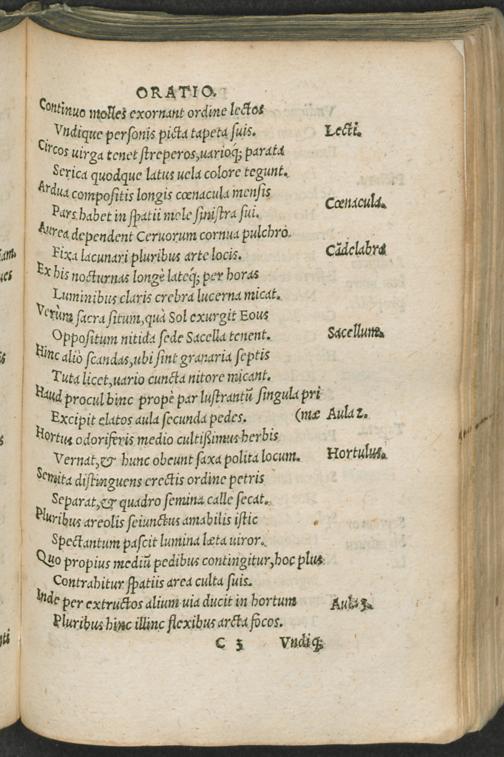 ORATIO.
Continuo molles exornant ordine lectos
Vndique personis picta tapeta suis. Lecti.
Circos uirga tenet streperos, uarioq́; parata
Serica quodque latus uela colore tegunt.
Ardua compositis longis cœnacula mensis
Pars habet in spatii mole sinistra sui. Cœnacula.
Aurea dependent Ceruorum cornua pulchro
Fixa lacunari pluribus arte locis. Cãdelabra
Ex his nocturnas longè lateq́; per horas
Luminibus claris crebra lucerna micat.
Verùm sacra situm, quà Sol exurgit Eous
Oppositum nitida sede Sacella tenent. Sacellum.
Hinc aliò scandas, ubi sint granaria septis
Tuta licet, uario cuncta nitore micant.
Haud procul hinc propè par lustrantũ singula pri
Excipit elatos aula secunda pedes. (mæ Aula 2.
Hortus odoriferis medio cultißimus herbis
Vernat, & hunc obeunt saxa polita locum. Hortulus.
Semita distinguens erectis ordine petris
Separat, & quadro semina calle secat.
Pluribus areolis seiunctus amabilis istic
Spectantum pascit lumina læta uiror.
Quo propius mediũ pedibus contingitur, hoc plus
Contrahitur spatiis area culta suis.
Inde per extructos alium uia ducit in hortum Aula 3.
Pluribus hinc illinc flexibus arcta focos.
C 3 Vndiq;